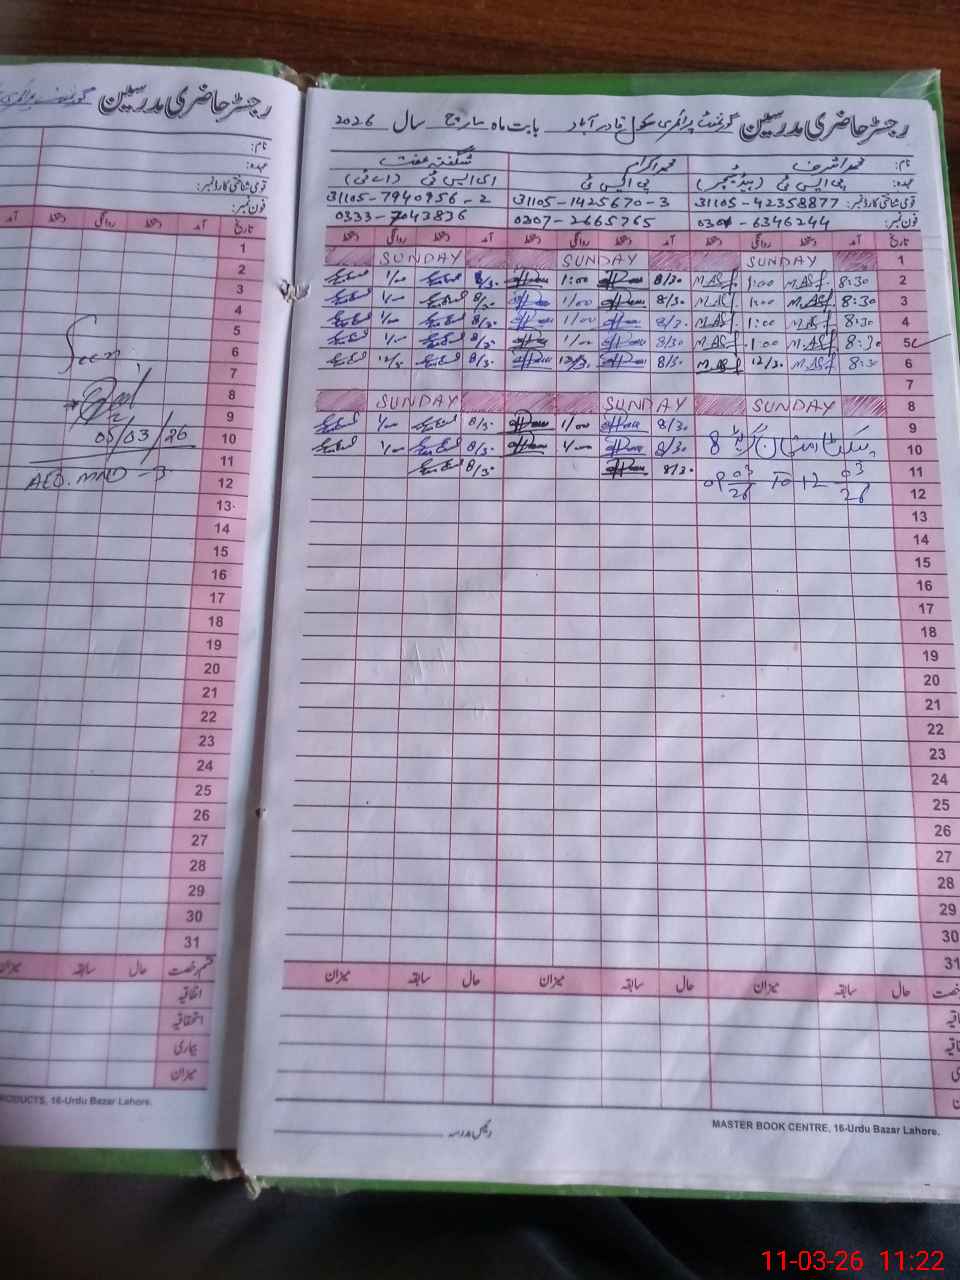 رجسٹر حاضری مدرسین گورنمنٹ پرائمری
نام:
عہدہ:
قومی شناختی کارڈ نمبر:
فون نمبر:
تاریخ آمد دستخط روانگی دستخط آمد
1
2
3
4
5
6
7
8
9
10
11
12
13
14
15
16
17
18
19
20
21
22
23
24
25
26
27
28
29
30
31
Seen
05/03/26
AEO. MND - 3
قسم رخصت حال سابقہ میزان
اتفاقیہ
استحقاقیہ
بیماری
میزان
RODUCTS, 16-Urdu Bazar Lahore.
رجسٹر حاضری مدرسین گورنمنٹ پرائمری سکول قادر آباد بابت ماہ مارچ سال 2026
نام: محمد اشرف محمد اکرام شگفتہ عفت
عہدہ: پی ایس ٹی (ہیڈ ٹیچر) پی ایس ٹی ای ایس ٹی
قومی شناختی کارڈ نمبر: 31105-42358877 31105-1425670-3 31105-7940956-2
فون نمبر: 6346244 0307-2665765 0333-7043836
تاریخ آمد دستخط روانگی دستخط آمد دستخط روانگی دستخط آمد دستخط روانگی دستخط
1 SUNDAY SUNDAY SUNDAY
2 8:30 M.ASf 1:00 M.ASf 8/30 1:00 8/30 1/00
3 8:30 M.ASf 1:00 M.ASf 8/30 1/00 8/30 1/00
4 8:30 M.ASf 1:00 M.ASf 8/30 1/00 8/30 1/00
5 8:30 M.ASf 1:00 M.ASf 8/30 1/00 8/30 1/00
6 8:30 M.ASf 12/30 M.ASf 8/30 12/30 8/30 12/30
7
8 SUNDAY SUNDAY SUNDAY
9 8/30 1/00 8/30 1/00
10 8 8/30 1/00 8/30 1/00
11 09 03/26 To 12 03/26 8/30 8/30
12
13
14
15
16
17
18
19
20
21
22
23
24
25
26
27
28
29
30
31
حال سابقہ میزان حال سابقہ میزان حال سابقہ میزان
رئیس مدرسہ
MASTER BOOK CENTRE, 16-Urdu Bazar Lahore.
11-03-26 11:22